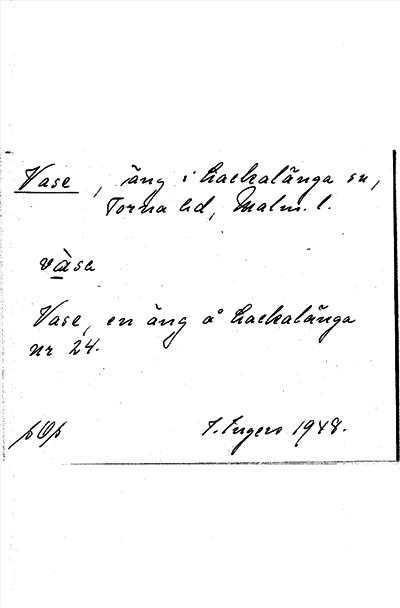 Vase, äng i Lackalänga sn,
Torna hd, Malm. l.
vàsa
Vase, en äng å Lackalänga
nr 24.
I. Ingers 1948.